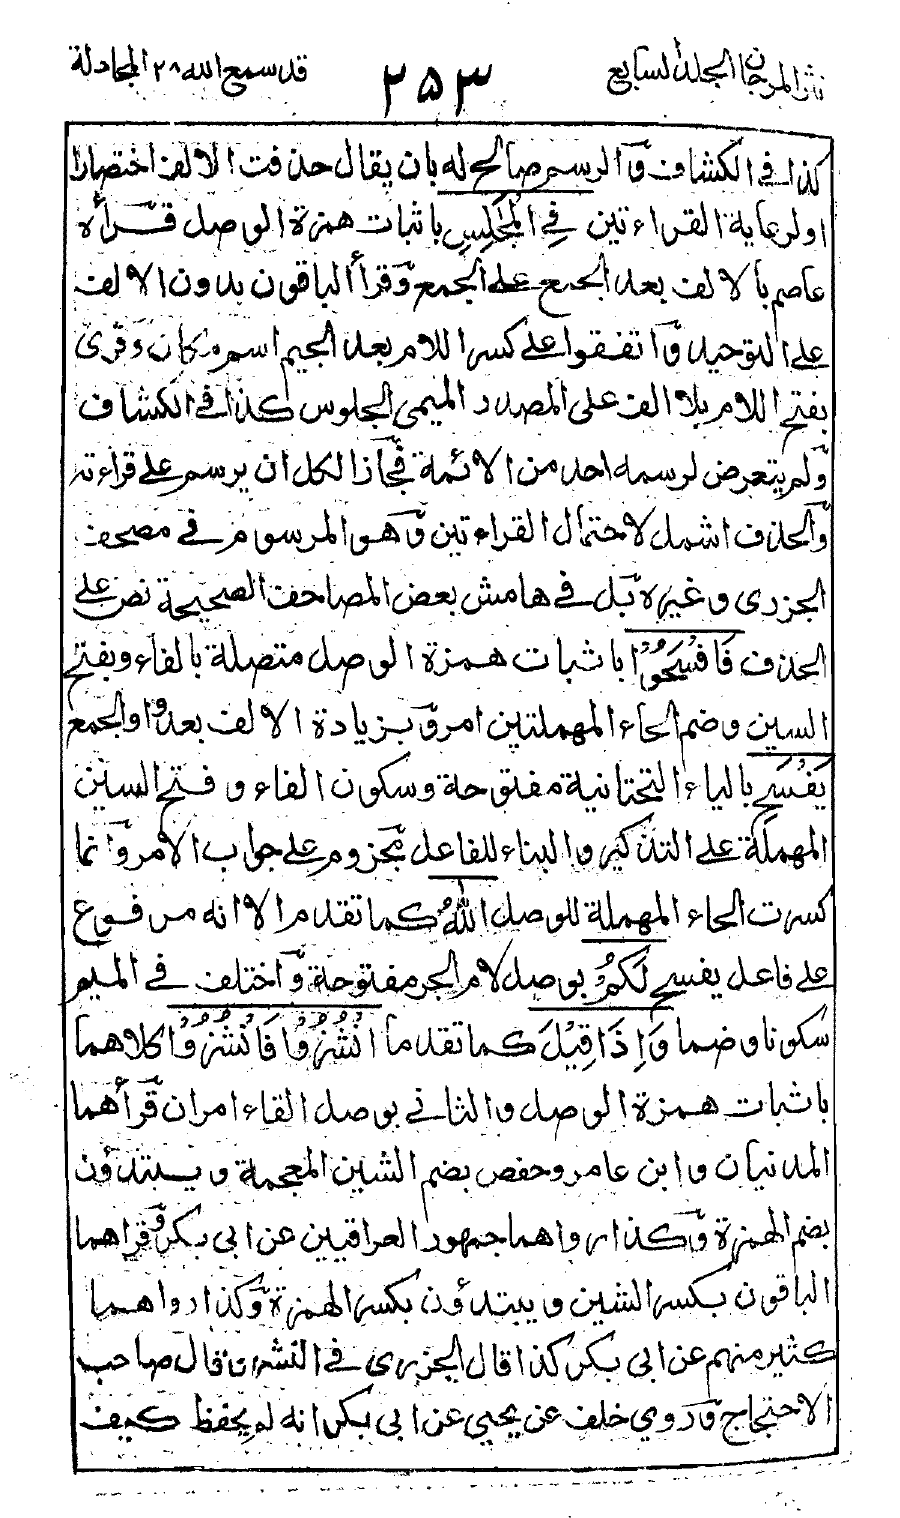 نثر المرجان المجلد السابع
٢٥٣
قد سمع الله ٢٨ المجادلة
كذا في الكشاف والرسم صالح له بان يقال حذفت الالف اختصارا
او لرعاية القراءتين في المجٰلِسِ باثبات همزة الوصل قرأه
عاصم بالالف بعد الجمع على الجمع وقرأ الباقون بدون الالف
على التوحيد واتفقوا على كسر اللام بعد الجيم اسم مكان وقرئ
بفتح اللام بلا الف على المصدر الميمي الجلوس كذا في الكشاف
ولم يتعرض لرسمه احد من الائمة فجاز الكل ان يرسم على قراءته
والحذف اشمل لاحتمال القراءتين وهو المرسوم في مصحف
الجزري وغيره بل في هامش بعض المصاحف الصحيحة نص على
الحذف فَافْسَحُوْا باثبات همزة الوصل متصلة بالفاء وبفتح
السين وضم الحاء المهملتين امر وبزيادة الالف بعد واو الجمع
يَفْسَحِ بالياء التحتانية مفتوحة وسكون الفاء وفتح السين
المهملة على التذكير والبناء للفاعل مجزوم على جواب الامر وانما
كسرت الحاء المهملة للوصل اللهُ كما تقدم الا انه مرفوع
على فاعل يفسح لَكُمْ بوصل لام الجر مفتوحة واختلف في الميم
سكونا وضما وَاِذَا قِيْلَ كما تقدما انْشُزُوْا فَانْشُزُوْا كلاهما
باثبات همزة الوصل والثاني بوصل الفاء امران قرأهما
المدنيان وابن عامر وحفص بضم الشين المعجمة ويبتدؤن
بضم الهمزة وكذا رواهما جمهور العراقيين عن ابي بكر وقراهما
الباقون بكسر الشين ويبتدؤن بكسر الهمزة وكذا رواهما
كثير منهم عن ابي بكر كذا قال الجزري في النشر وقال صاحب
الاحتجاج وروي خلف عن يحيى عن ابي بكر انه لم يحفظ كيف